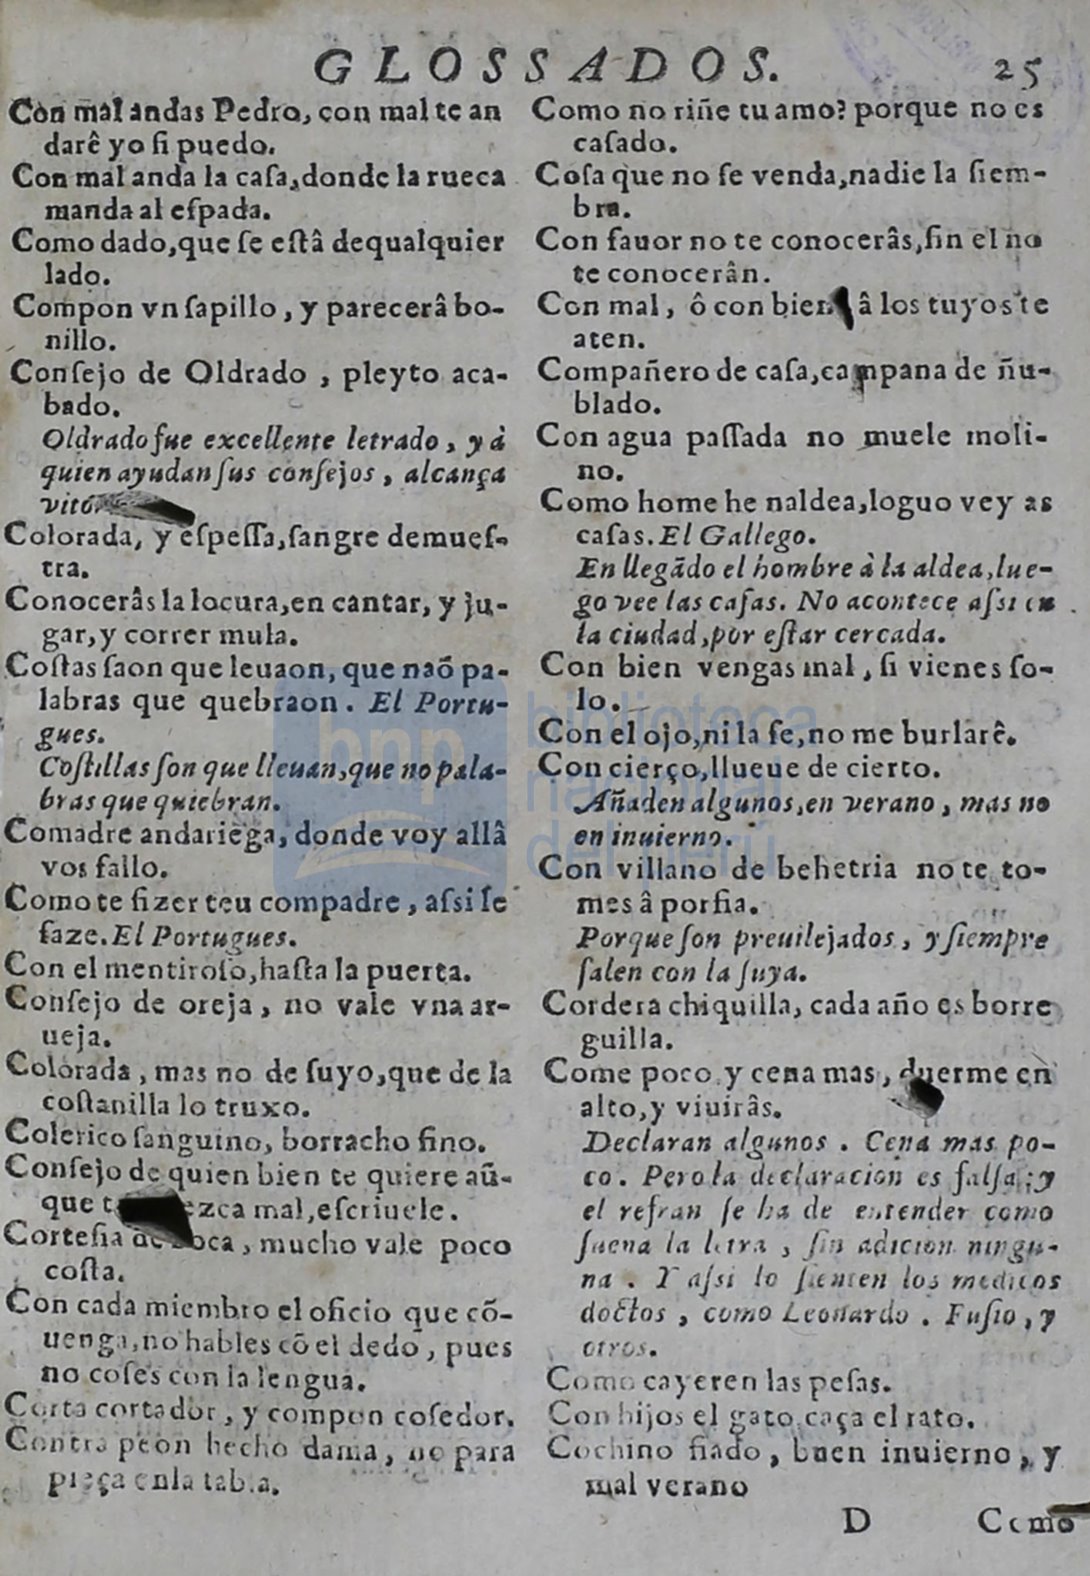 GLOSSADOS. 25
Con mal andas Pedro, con mal te an
darê yo ſi puedo.
Con mal anda la caſa, donde la rueca
manda al eſpada.
Como dado, que ſe eſtâ dequalquier
lado.
Compon vn ſapillo, y parecerâ bo-
nillo.
Conſejo de Oldrado, pleyto aca-
bado.
Oldrado fue excellente letrado, y à
quien ayudan ſus conſejos, alcança
Colorada, y eſpeſſa, ſangre demueſ-
tra.
Conocerâs la locura, en cantar, y ju-
gar, y correr mula.
Coſtas ſaon que leuaon, que naõ pa-
labras que quebraon. El Portu-
gues.
Coſtillas ſon que lleuan, que no pala-
bras que quiebran.
Comadre andariega, donde voy allâ
vos fallo.
Como te fizer teu compadre, aſsi ſe
faze. El Portugues.
Con el mentiroſo, haſta la puerta.
Conſejo de oreja, no vale vna ar-
ueja.
Colorada, mas no de ſuyo, que de la
coſtanilla lo truxo.
Colerico ſanguino, borracho fino.
Conſejo de quien bien te quiere aũ-
que mal, eſcriuele.
Corteſia de boca, mucho vale poco
coſta.
Con cada miembro el oficio que cõ-
uenga, no hables cõ el dedo, pues
no coſes con la lengua.
Corta cortador, y compon coſedor.
Contra peon hecho dama, no para
pieça enla tabla.
Como no riñe tu amo? porque no es
caſado.
Coſa que no ſe venda, nadie la ſiem-
bra.
Con fauor no te conocerâs, ſin el no
te conocerân.
Con mal, ô con bien â los tuyos te
aten.
Compañero de caſa, campana de ñu-
blado.
Con agua paſſada no muele moli-
no.
Como home he naldea, loguo vey as
caſas. El Gallego.
En llegãdo el hombre à la aldea, lue-
go vee las caſas. No acontece aſsi en
la ciudad, por eſtar cercada.
Con bien vengas mal, ſi vienes ſo-
lo.
Con el ojo, ni la fe, no me burlarê.
Con cierço, llueue de cierto.
Añaden algunos, en verano, mas no
en inuierno.
Con villano de behetria no te to-
mes â porfia.
Porque ſon preuilejados, y ſiempre
ſalen con la ſuya.
Cordera chiquilla, cada año es borre
guilla.
Come poco y cena mas, duerme en
alto, y viuirâs.
Declaran algunos. Cena mas po-
co. Pero la declaracion es falſa; y
el refran ſe ha de entender como
ſuena la letra, ſin adicion ningu-
na. Y aſsi lo ſienten los medicos
doctos, como Leonardo. Fuſio, y
otros.
Como cayeren las peſas.
Con hijos el gato caça el rato.
Cochino fiado, buen inuierno, y
mal verano
D Como
bnp biblioteca
nacional
del perú